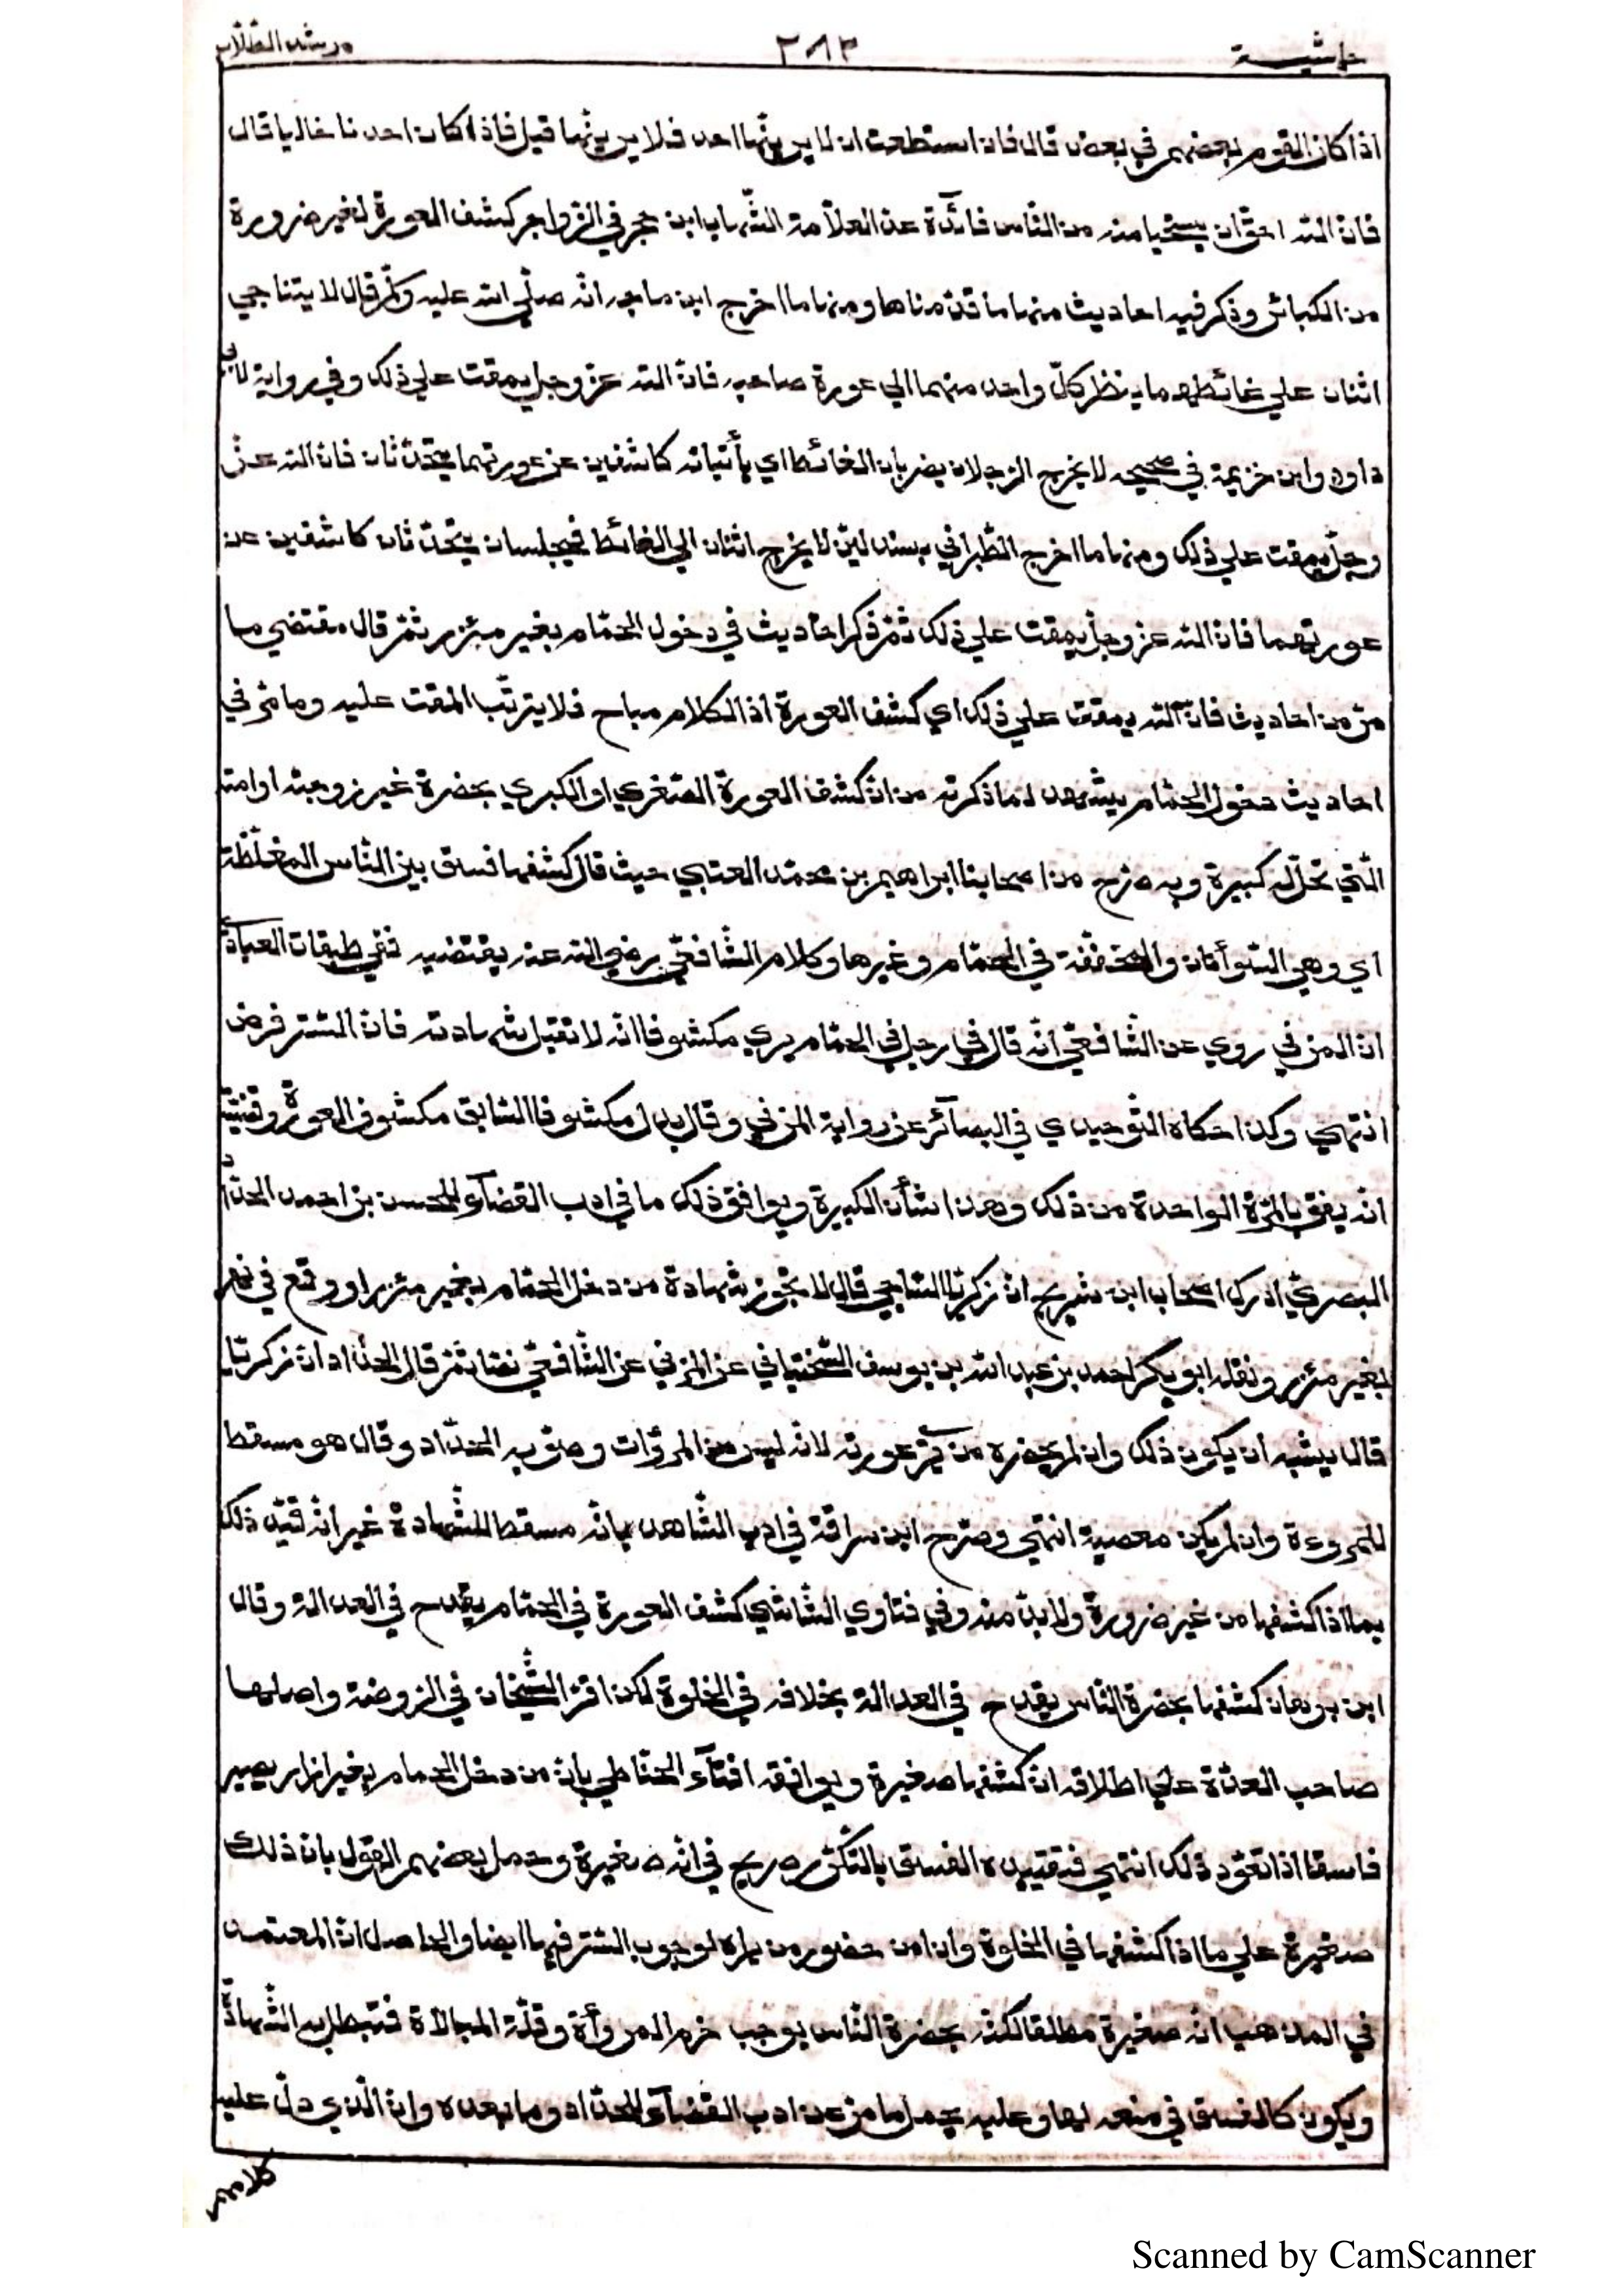 حاشية
٢٨٣
مرشد الطّلّاب
اذا كان القوم بعضهم في بعض قال فان استطعت ان لا يرينّها احد فلا يرينّها قيل فاذا كان احدنا خاليا قال
فانّ الله احقّ ان يستحيا منه من النّاس فائدة عن العلاّمة الشّهاب ابن حجر في الزواجر كشف العورة لغير ضرورة
من الكبائر وذكر فيه احاديث منها ما قدّمناها ومنها ما اخرج ابن ماجه انّه صلّى الله عليه وسلّم قال لا يتناجي
اثنان علي غائطهما ينظر كلّ واحد منهما الي عورة صاحبه فانّ الله عزّ وجلّ يمقت علي ذلك وفي رواية لابي
داود وابن خزيمة في صحيحه لا يخرج الرّجلان يضربان الغائط اي يأتيانه كاشفين عن عورتهما يتحدّثان فانّ الله عزّ
وجلّ يمقت علي ذلك ومنها ما اخرج الطّبراني بسند ليّن لا يخرج اثنان الي الغائط فيجلسان يتحدّثان كاشفين عن
عورتهما فانّ الله عزّ وجلّ يمقت علي ذلك ثمّ ذكر احاديث في دخول الحمّام بغير مئزر ثمّ قال مقتضي ما
مرّ من احاديث فانّ الله يمقت علي ذلك اي كشف العورة اذ الكلام مباح فلا يترتّب المقت عليه وما مرّ في
احاديث دخول الحمّام يشهد لما ذكرته من انّ كشف العورة الصّغري او الكبري بحضرة غير زوجته او امته
الّتي تحلّ له كبيرة وبه صرّح من اصحابنا ابراهيم بن محمّد العتبي حيث قال كشفها فسق بين النّاس المغلّظة
اي وهي السّوأتان والمخفّفة في الحمّام وغيرها وكلام الشّافعيّ رضي الله عنه يقتضيه ففي طبقات العبّاديّ
انّ المزني روي عن الشّافعيّ انّه قال في رجل في الحمّام يري مكشوفا انّه لا تقبل شهادته فانّ السّتر فرض
انتهي وكذا حكاه التّوحيدي في البصائر عن رواية المزني وقال بدل مكشوفا السّابق مكشوف العورة وقضيّته
انّه يفسّق بالمرّة الواحدة من ذلك وهذا شأن الكبيرة ويوافق ذلك ما في ادب القضاء للحسن بن احمد الحدّاد
البصريّ ادرك اصحاب ابن شريح انّ زكريّا السّاجي قال لا تجوز شهادة من دخل الحمّام بغير مئزر او وقع في نهر
بغير مئزر ونقله ابو بكر احمد بن عبد الله بن يوسف السّختياني عن المزني عن الشّافعيّ نصّا ثمّ قال الحدّاد انّ زكريّا
قال يشبه ان يكون ذلك وان لم يحضره من يري عورته لانّه ليس من المروّات وصوّبه الحدّاد وقال هو مسقط
للمروءة وان لم يكن معصية انتهي وصرّح ابن سراقة في ادب الشّاهد بانّه مسقط للشّهادة غير انّه قيّد ذلك
بما اذا كشفها من غير ضرورة ولا بدّ منه وفي فتاوي الشّاشي كشف العورة في الحمّام يقدح في العدالة وقال
ابن برهان كشفها بحضرة النّاس يقدح في العدالة بخلافه في الخلوة لكن اقرّ الشّيخان في الرّوضة واصلها
صاحب العدّة علي اطلاقه انّ كشفها صغيرة ويوافقه افتاء الحنّاطي بانّ من دخل الحمام بغير ازار يصير
فاسقا اذا تعوّد ذلك انتهي فتقييده الفسق بالتّكرّر صريح في انّه صغيرة وحمل بعضهم القول بانّ ذلك
صغيرة علي ما اذا كشفها في الخلوة وان امن حضور من يراه لوجوب السّتر فيها ايضا والحاصل انّ المعتمد
في المذهب انّه صغيرة مطلقا لكنّه بحضرة النّاس يوجب خرم المروأة وقلّة المبالاة فتبطل به الشّهادة
ويكون كالفسق في منعه لها وعليه يحمل ما مرّ عن ادب القضاء للحدّاد وما بعده وانّ الّذي دلّ عليه
كلامهم
Scanned by CamScanner